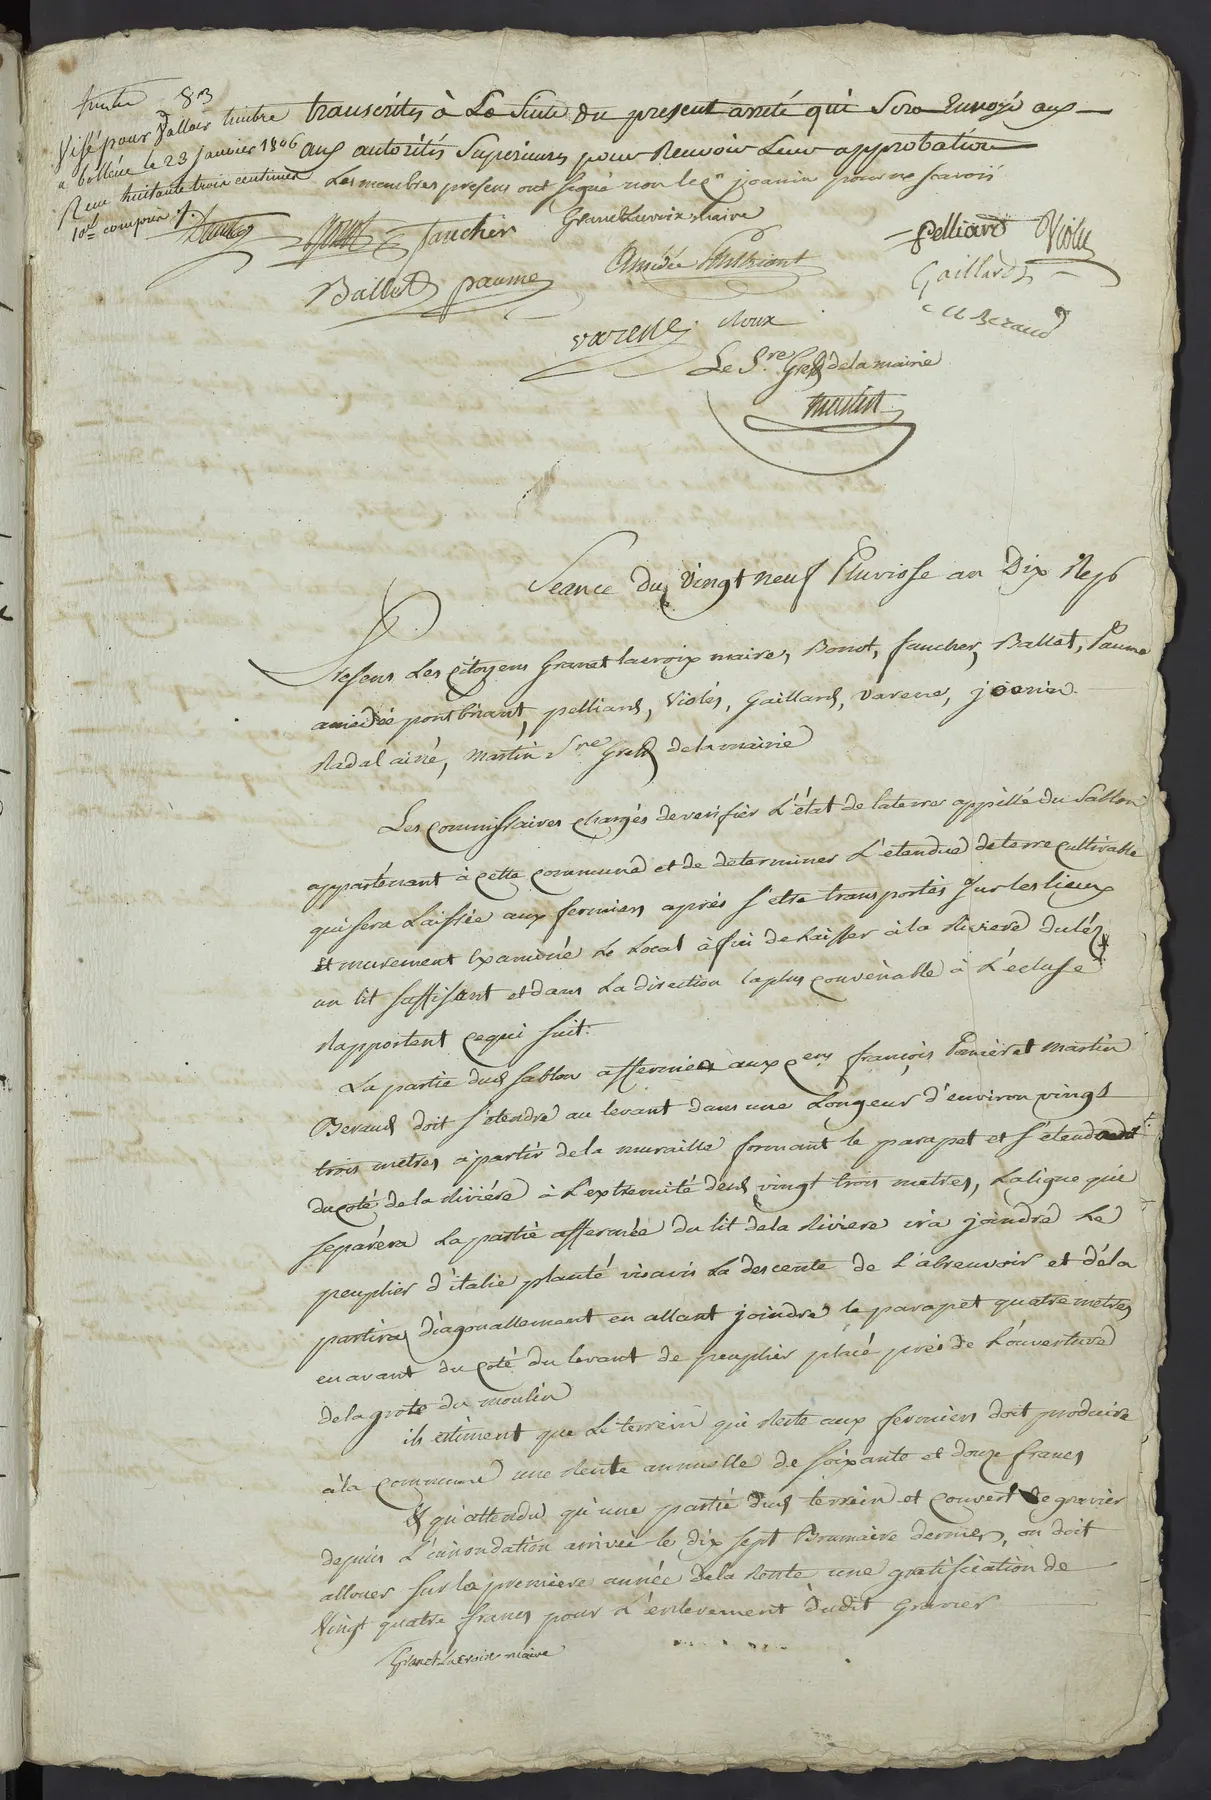 trente 83
Visé pour valloir timbre
a bollène le 23 janvier 1806
Reçu huitante trois centimes
10e compris f.
transcrites à La Suite du present arreté qui Sera Envoyé aux
aux autorités Superieures pour Recevoir Leur approbation
Les membres presens ont signé non le cn joanin pour ne scavoir
Granet Lacroix maire
faucher
pelliard Violés
Amédée Pontbriant
Gaillard
Ballet paume
M Beraud
varene Roux
Le Sre Greff de la mairie
Martin
Seance du Vingt neuf Pluviosse an Dix Repb
Presens Les Citoyens Granet lacroix maire, Bonot, faucher, Ballet, Paume
amedée pontbriant, pelliard, Violés, Gaillard, varene, joanin
Radal ainé, Martin Sre Greff de la mairie
Les commissaires chargés de verifier L'état de la terre appellé du Sablon
appartenant à cette commune et de determiner L'etendue de terre cultivable
qui sera Laissée aux fermiers après s'etre transportés sur les lieux
et murement Examiné Le Local à fin de Laisser à la Riviere du léz
un lit suffisant et dans La direction la plus convenable à L'écluse
Rapportent ce qui suit:
La partie dud sablon affermée aux cens françois Pommier et martin
Beraud doit s'étendre au levant dans une Longeur d'environ vingt
trois metres à partir de la muraille formant le parapet et s'etendant
du coté de la Riviére à L'extremité desd vingt trois metres, La ligne qui
separera La partie affermée du lit de la Riviere ira joindre Le
peuplier d'italie planté visavis La descente de L'abreuvoir et de la
partira diagonallement en allant joindre le parapet quatre metres
en avant du coté du levant de peuplier placé près de L'ouverture
de la grote du moulin
ils estiment que Le terrein qui Reste aux fermiers doit produire
à la commune une Rente annuelle de soixante et douze francs
Et qu'attendu qu'une partie dud terrein et couvert de gravier
depuis L'inondation arrivée le dix sept Brumaire dernier, on doit
allouer sur la premiere année de la Rente une gratification de
Vingt quatre francs pour L'enlevement dudit Gravier
Granet Lacroix maire